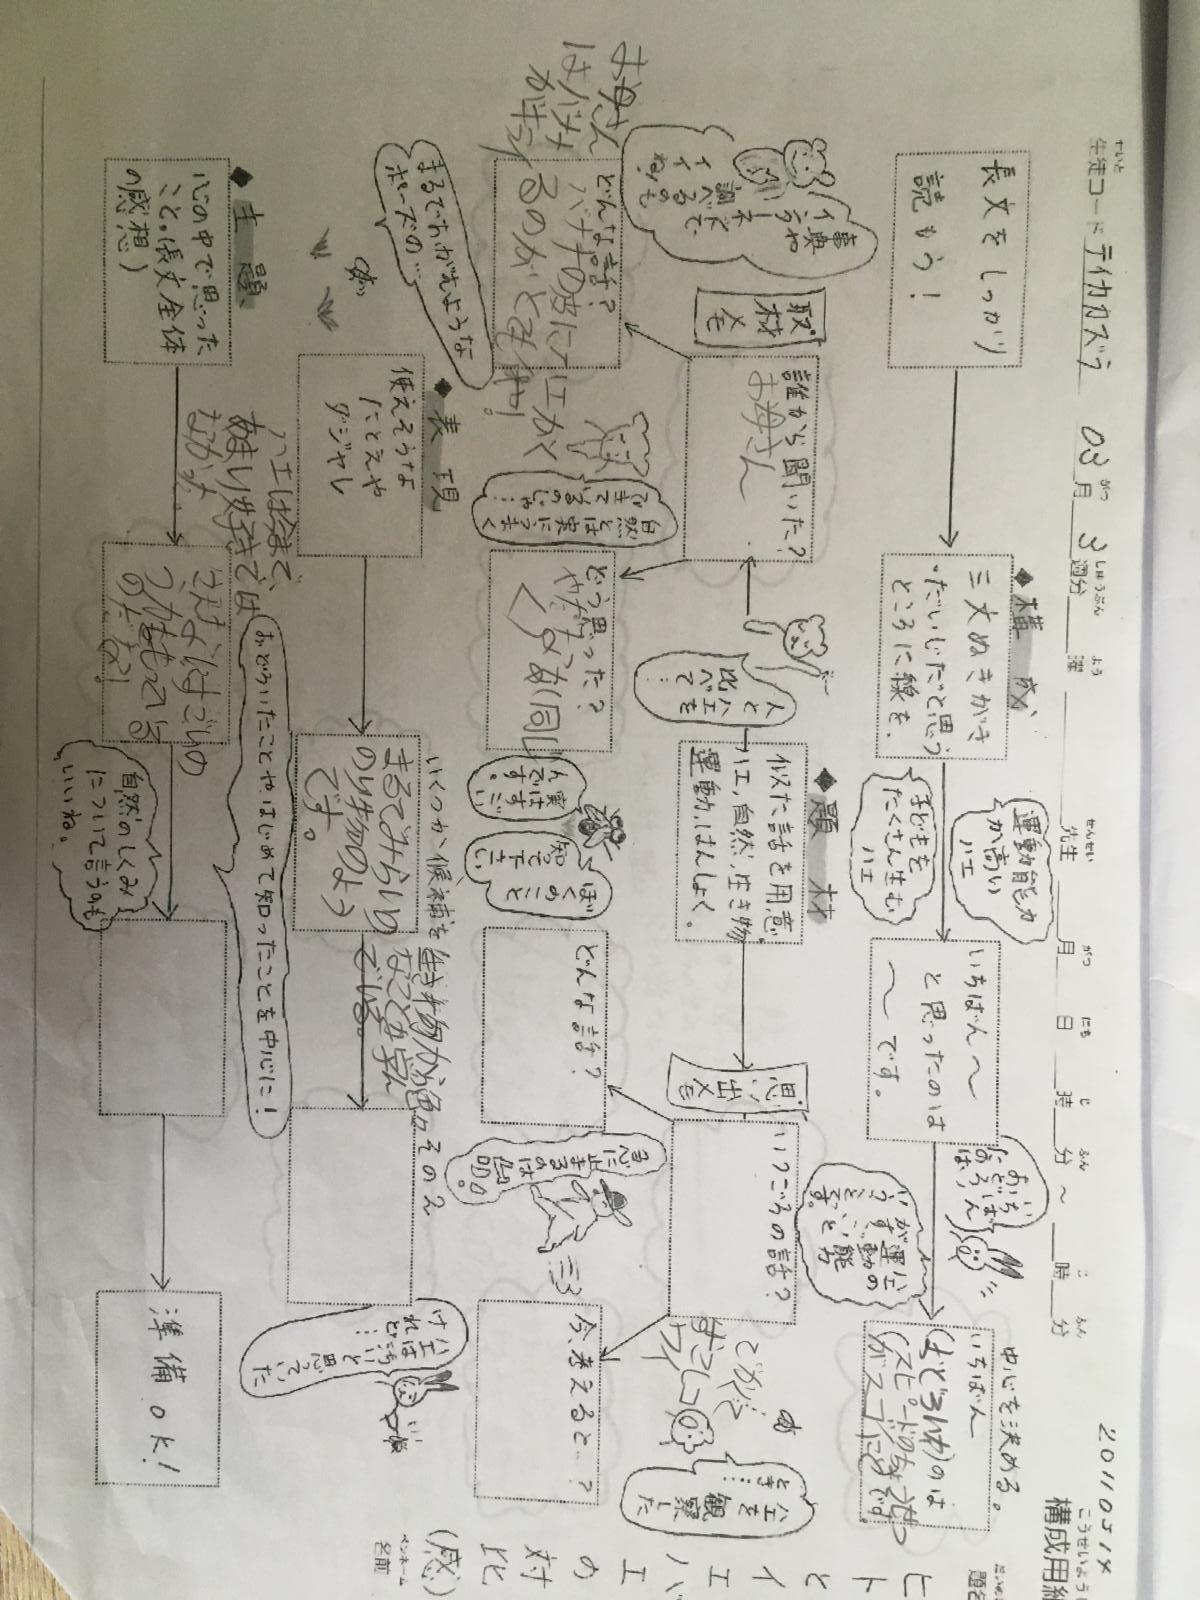 20110514
構成用紙
こうせいようし
せいと
生徒コード テイカカズラ 03月 3週分 曜 先生 月 日 時 分 ～ 時 分
題名
ヒトとハエの対比
(感)
ペンネーム
名前
長文をしっかり
読もう！
◆構成
三文ぬきがき
“だいじだ”と思う
ところに線を。
運動能力
が高い
ハエ
子どもを
たくさん生む
ハエ
いちばん～
と思ったのは
～です。
いちばん
おどろい
たのは、
中心を決める。
いちばん
(おどろいた)のは
◆題材
似た話を用意。
ハエ，自然，生き物
運動，はんしょく。
人と
ハエを
比べて…
取材メモ
事典や
インター
ネットで
調べるのも
イイね！
誰から聞いた？
お母さん
どんな話？
バナナの皮にハエがく
るのがとてもイヤ！
お母さん
はバナナ
がキライ
自然とは実にうまく
できているのじゃ…
どう思った？
やだなあ(同じ
実はすごい
んです。
ぼくのこと
知って下さい
思い出メモ
いつごろの話？
どんな話？
急に止まるのは
ハエを
観察した
とき…
今、考えると…？
◆表現
使えそうな
たとえや
ダジャレ
まるでわが家のような
ポーズだの…
いくつか候補を
まるでみらいの
のり物のよう
です。
生き物から色々
なことを学ん
でいる。
その2
ハエは
汚い
と思っていた
けれど…
◆主題
心の中で思った
こと。(長文全体
の感想)
ハエは今まで、
あまり好きでは
なかった
こんなにすごいの
うりょくをもっている
のだな！
おどろいたことや、はじめて知ったことを中心に！
自然のしくみ
について言うのも
いいね。
準備OK！